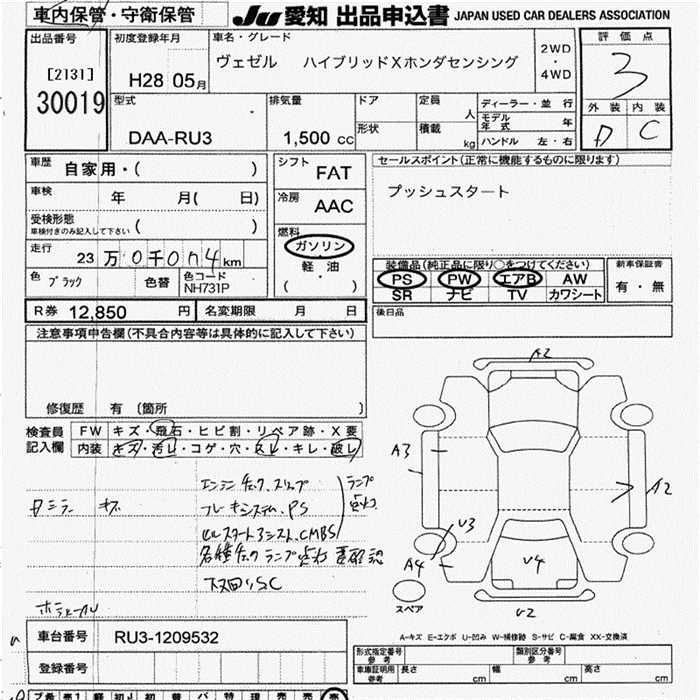 車内保管・守衛保管
JU 愛知 出品申込書 JAPAN USED CAR DEALERS ASSOCIATION
出品番号
[2131]
30019
初度登録年月
H28 05月
車名・グレード
ヴェゼル ハイブリッドXホンダセンシング
2WD
・
4WD
評価点
3
外装 内装
D C
型式
DAA-RU3
排気量
1,500 cc
ドア
形状
定員 人
積載 kg
ディーラー・並 行
モデル年式 年
ハンドル 左・右
車歴 自家用・( )
車検 年 月( 日)
受検形態
車検付きのみ記入して下さい ( )
走行 23万0千0n4km
色 ブラック 色替 色コード NH731P
シフト FAT
冷房 AAC
燃料
ガソリン
・
軽・油
( )
セールスポイント(正常に機能するものに限ります)
プッシュスタート
装備品(純正品に限り○をつけてください)
PS PW エアB AW
SR ナビ TV カワシート
新車保証書
有・無
R券 12,850 円
名変期限 月 日
後日品
注意事項申告欄(不具合内容等は具体的に記入して下さい)
修復歴 有 〔箇所 〕
検査員記入欄
FW キズ・飛石・ヒビ割・リペア跡・X要
内装 キズ・汚レ・コゲ・穴・スレ・キレ・破レ
エンジンチェック、スリップ
ブレーキシステム、PS
ランプ点灯
キズ
CMBS
各種チェックランプ点灯 要確認
下回りSC
A2
A3
A2
U3
A4
U4
U2
スペア
A-キズ E-エクボ U-凹み W-補修跡 S-サビ C-腐食 XX-交換済
車台番号 RU3-1209532
登録番号
型式指定番号 参考
類別区分番号 参考
車庫証明用 参考 長さ cm 幅 cm 高さ cm